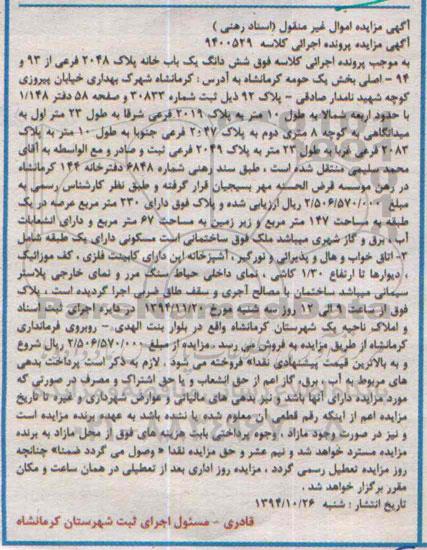 آگهی مزایده اموال غیر منقول (اسناد رهنی )
آگهی مزایده پرونده اجرائی کلاسه ۹۴۰۰۵۲۹
به موجب پرونده اجرائی کلاسه فوق شش دانگ یک باب خانه پلاک ۲۰۴۸ فرعی از ۹۳ و
۹۴ - اصلی بخش یک حومه کرمانشاه به آدرس : کرمانشاه شهرک بهداری خیابان پیروزی
کوچه شهید نامدار صادقی - پلاک ۹۲ ذیل ثبت شماره ۳۰۸۳۳ و صفحه ۵۸ دفتر ۱/۱۴۸
با حدود اربعه شمالا به طول ۱۰ متر به پلاک ۲۰۱۹ فرعی شرقا به طول ۲۳ متر اول به
میدانگاهی به کوچه ۸ متری دوم به پلاک ۲۰۴۷ فرعی جنوبا به طول ۱۰ متر به پلاک
۲۰۸۳ فرعی غربا به طول ۲۳ متر به پلاک ۲۰۴۹ فرعی ثبت و صادر و مع الواسطه به آقای
محمد سلیمی منتقل شده است ، طبق سند رهنی شماره ۶۸۴۸ دفترخانه ۱۴۴ کرمانشاه
در رهن موسسه قرض الحسنه مهر بسیجیان قرار گرفته و طبق نظر کارشناس رسمی به
مبلغ ۲/۵۰۶/۵۷۰/۰۰۰ ریال ارزیابی شده و پلاک فوق دارای ۲۳۰ متر مربع عرصه در یک
طبقه به مساحت ۱۴۷ متر مربع و زیر زمین به مساحت ۶۷ متر مربع و دارای انشعابات
آب ، برق و گاز شهری میباشد ملک فوق ساختمانی است مسکونی دارای یک طبقه شامل
۳- اتاق خواب و هال و پذیرائی و نورگیر ، آشپزخانه اپن دارای کابینت فلزی ، کف موزائیک
، دیوارها تا ارتفاع ۱/۳۰ کاشی ، نمای داخلی حیاط سنگ مرر و نمای خارجی پلاستر
سیمانی میباشد ساختمان با مصالح آجری و سقف طاق ضربی اجرا گردیده است ، پلاک
فوق از ساعت ۹ الی ۱۲ روز سه شنبه مورخ ۱۳۹۴/۱۱/۲۰ در دایره اجرای ثبت اسناد
و املاک ناحیه یک شهرستان کرمانشاه واقع در بلوار بنت الهدی - روبروی فرمانداری
کرمانشاه از طریق مزایده به فروش می رسد . مزایده از مبلغ ۲/۵۰۶/۵۷۰/۰۰۰ ریال شروع
و به بالاترین قیمت پیشنهادی نقدا" فروخته می شود . لازم به ذکر است پرداخت بدهی
های مربوط به آب ، برق، گاز اعم از حق انشعاب و یا حق اشتراک و مصرف در صورتی که
مورد مزایده دارای آنها باشد و نیز بدهی های مالیاتی و عوارض شهرداری و غیره تا تاریخ
مزایده اعم از اینکه رقم قطعی آن معلوم شده یا نشده باشد به عهده برنده مزایده است
و نیز در صورت وجود مازاد ، وجوه پرداختی بابت هزینه های فوق از محل مازاد به برنده
مزایده مسترد خواهد شد و نیم عشر و حق مزایده نقدا " وصول می گردد ضمنا" چنانچه
روز مزایده تعطیل رسمی گردد ، مزایده روز اداری بعد از تعطیلی در همان ساعت و مکان
مقرر برگزار خواهد شد .
تاریخ انتشار : شنبه ۱۳۹۴/۱۰/۲۶
قادری - مسئول اجرای ثبت شهرستان کرمانشاه